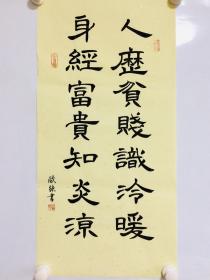 人歷貧賤識冷暖
身經富貴知炎涼